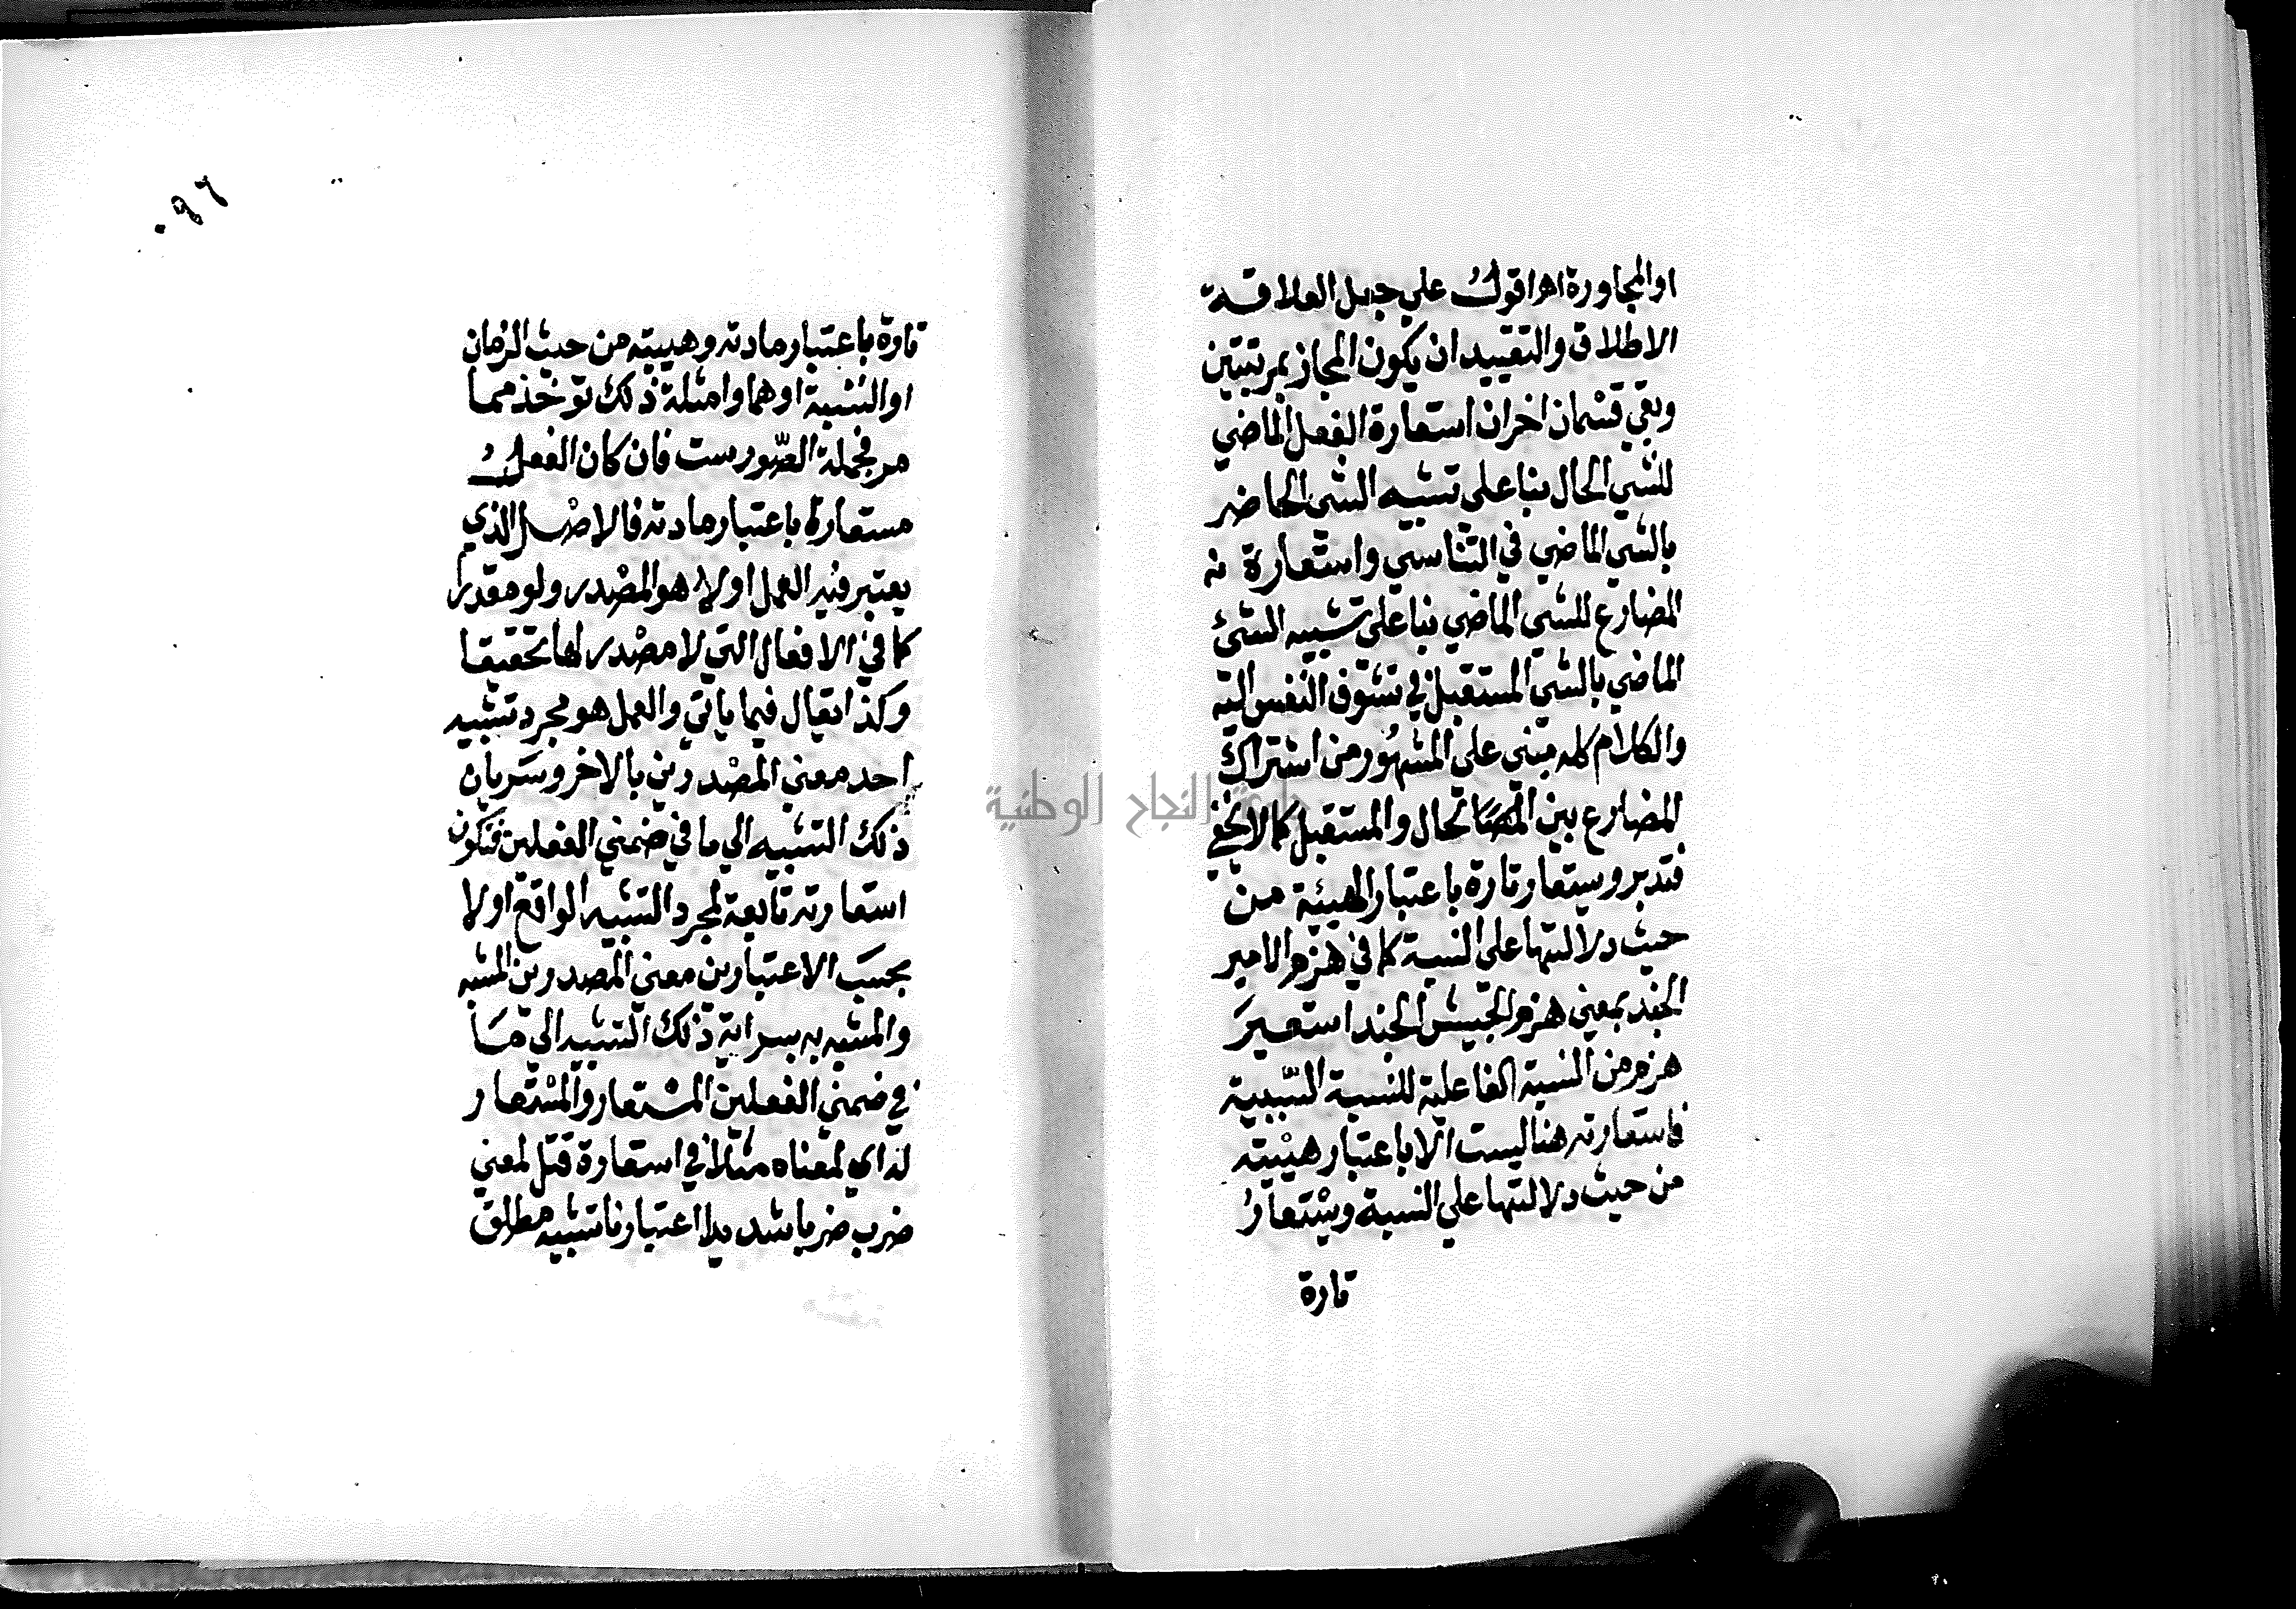 او المجاورة اهـ اقول علي جعل العلاقة
الاطلاق والتقييد ان يكون المجاز بمرتبتين
وبقي قسْمان اخران استعارة الفعل الماضي
للشي الحال بناعلى تشبيه الشي الحاضر
بالشي الماضي في التناسي واستعارة
المضارع للشي الماضي بناعلى تشبيه الشئ
الماضي بالشي المستقبل في تشوف النفس اليه
والكلام كله مبني على المشهور من اشتراك
المضارع بين الحال والمستقبل كما لا يخفي
فتدبر وستعار تارة باعتبار الهيئة من
حيث دلالتها على النسبة كما في هزم الامير
الجند بمعني هزم الجيش الجند استعير
هزم من النسبة الفاعلية للنسبة السّببية
فاستعارته هنا ليست الا باعتبار هيْيته
من حيث دلالتها علي النسبة ويسْتعار
تارة
٠٩٦
تارة باعتبار مادته وهييته من حيث الزمان
او النسْبة او هما وامثلة ذلك توخذ مما
مر فجملة الصّور ست فان كان الفعل
مستعارة باعتبار مادته فالاصْل الذي
يعتبر فيه العمل اولا هو المصْدر ولو مقدرا
كما في الافعال التي لا مصْدر لها تحقيقا
وكذا يقال فيما ياتي والعمل هو مجرد تشبيه
احد معني المصْدرين بالاخر وسَريان
ذلك التشبيه الي ما في ضمني الفعلين فتكون
استعارته تابعة لمجرد التشبيه الواقع اولا
بحسَب الاعتبار بين معني المصدرين المشبه
والمشبه به بسراية ذلك التشبيه الي مَا
في ضمني الفعلين المسْتعار والمسْتعار
له اي لمعناه مثلا في استعارة قتل لمعني
ضرب ضربا شديدا اعتبارنا تشبيه مطلق
جامعة النجاح الوطنية